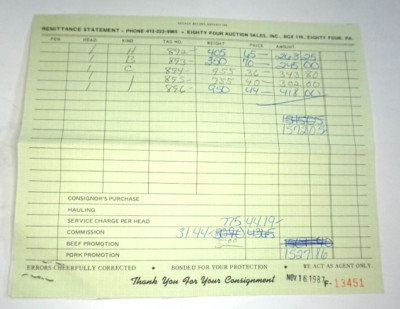 REMITTANCE STATEMENT - PHONE 412-222- - EIGHTY FOUR AUCTION SALES, INC., BOX 116, EIGHTY FOUR, PA.
PEN HEAD KIND TAG NO. WEIGHT PRICE AMOUNT
1 H 892- 405 65- 263 25
1 B 893- 350 70- 245 00
1 C 894- 955 36- 343 80
1 895- 755 40- 302 00
1 896- 950 44- 418 00
1572 05
CONSIGNOR'S PURCHASE
HAULING
SERVICE CHARGE PER HEAD 775 4419-
COMMISSION 3144
BEEF PROMOTION 5.00
PORK PROMOTION 1527 86
ERRORS CHEERFULLY CORRECTED • BONDED FOR YOUR PROTECTION • WE ACT AS AGENT ONLY.
Thank You For Your Consignment NOV 16 1987 F- 13451